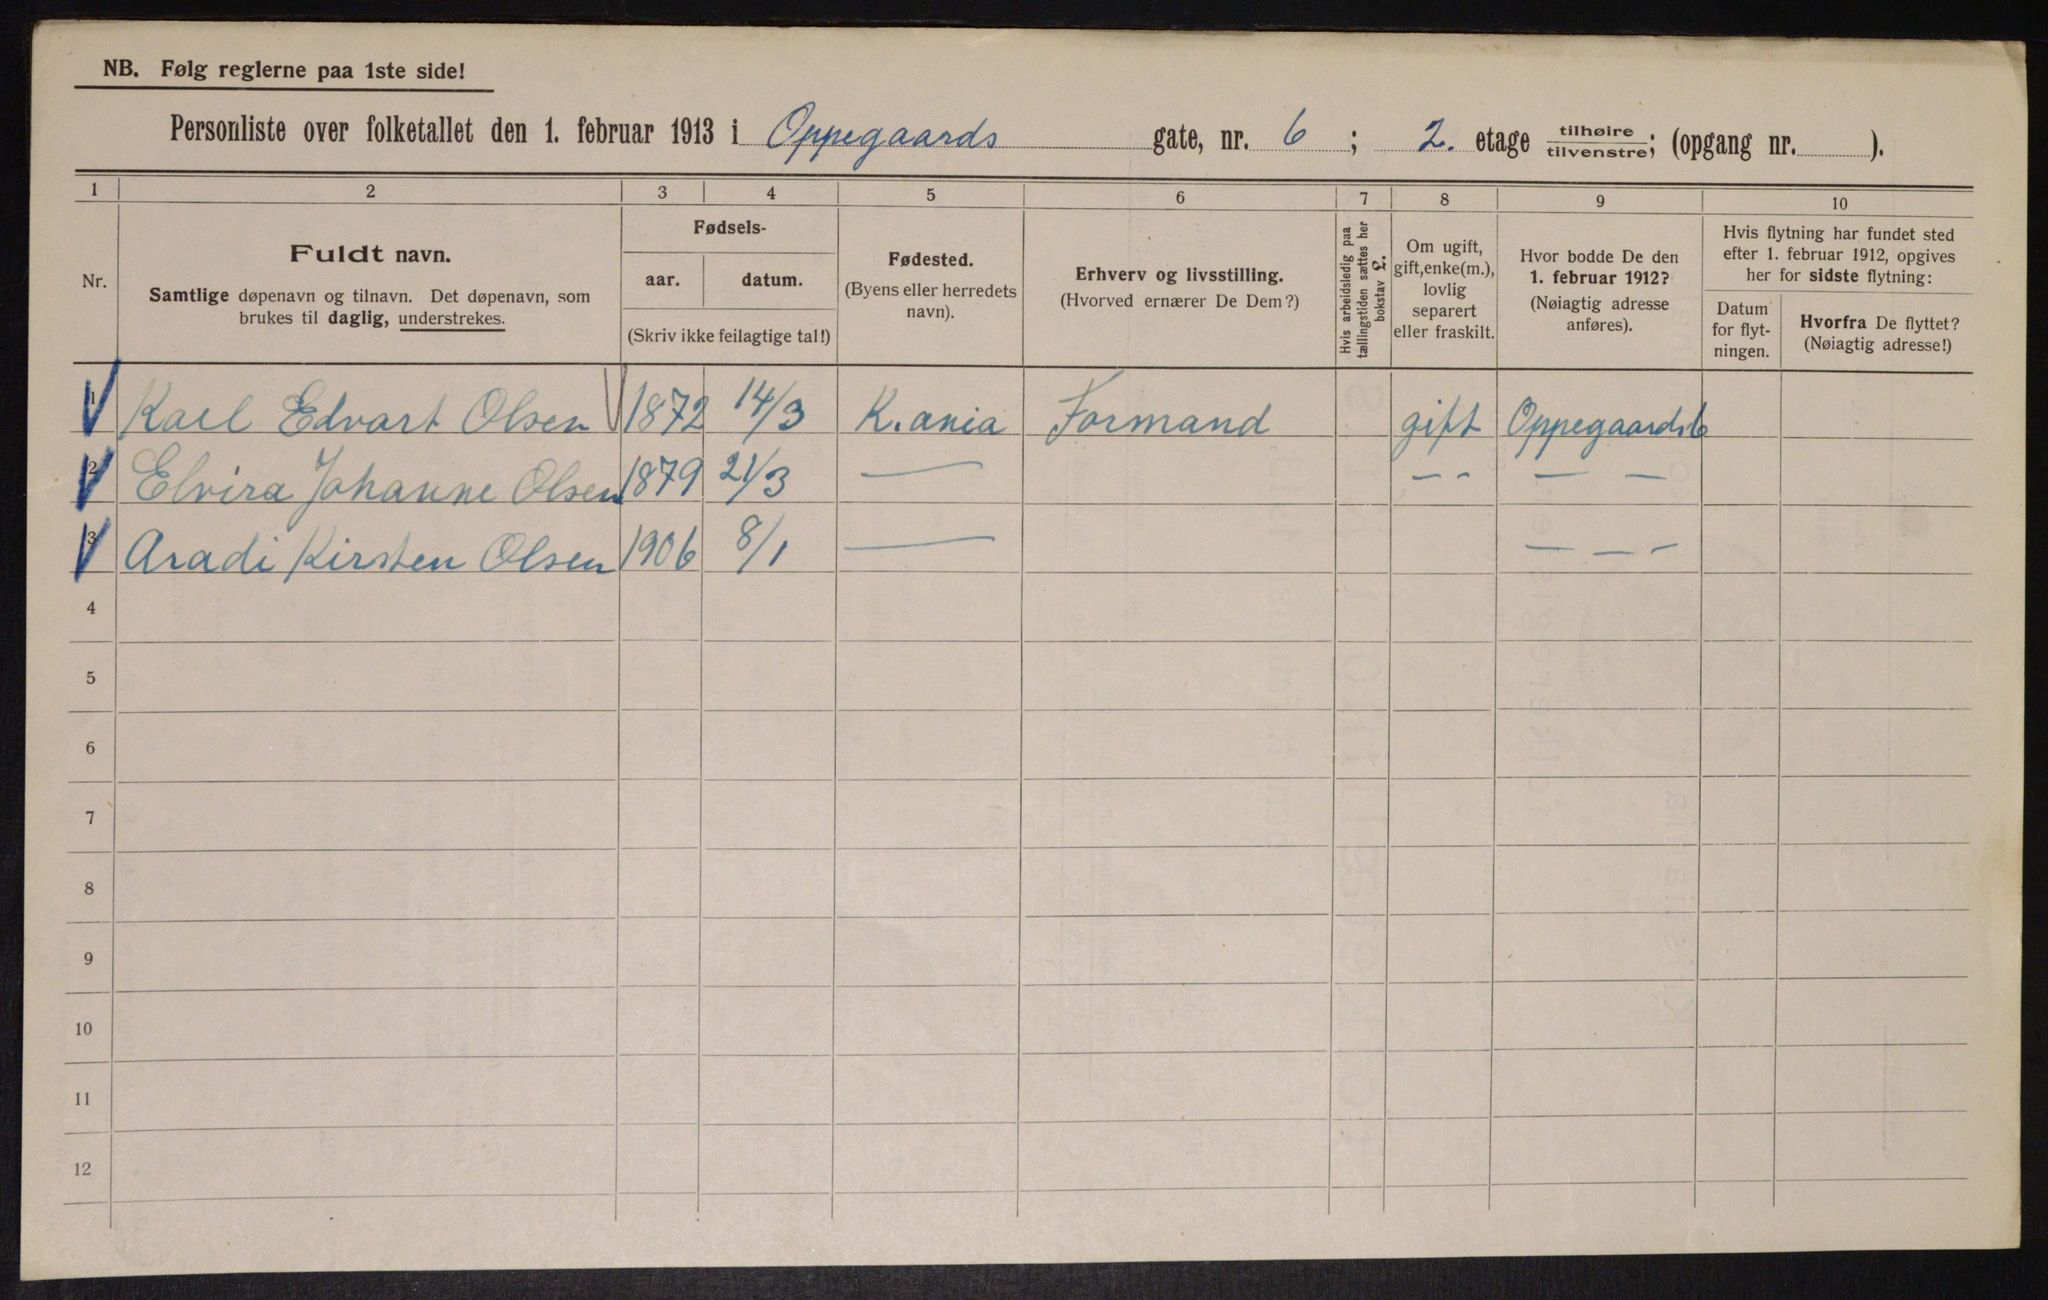 NB. Følg reglerne paa 1ste side!
Personliste over folketallet den 1. februar 1913 i Oppegaards gate, nr. 6 ; 2. etage tilhøire tilvenstre; (opgang nr. ).
1 2 3 4 5 6 7 8 9 10
Nr.
Fuldt navn.
Samtlige døpenavn og tilnavn. Det døpenavn, som
brukes til daglig, understrekes.
Fødsels-
aar. datum.
(Skriv ikke feilagtige tal!)
Fødested.
(Byens eller herredets
navn).
Erhverv og livsstilling.
(Hvorved ernærer De Dem?)
Hvis arbeidsledig paa
tællingstiden sættes her
bokstav L.
Om ugift,
gift, enke(m.),
lovlig
separert
eller fraskilt.
Hvor bodde De den
1. februar 1912?
(Nøiagtig adresse
anføres).
Hvis flytning har fundet sted
efter 1. februar 1912, opgives
her for sidste flytning:
Datum
for flyt-
ningen.
Hvorfra De flyttet?
(Nøiagtig adresse!)
1 Karl Edvart Olsen 1872 14/3 K.ania Formand gift Oppegaards 6
2 Elvira Johanne Olsen 1879 21/3 — – – — —
3 Aradi Kirsten Olsen 1906 8/1 — — — —
4
5
6
7
8
9
10
11
12